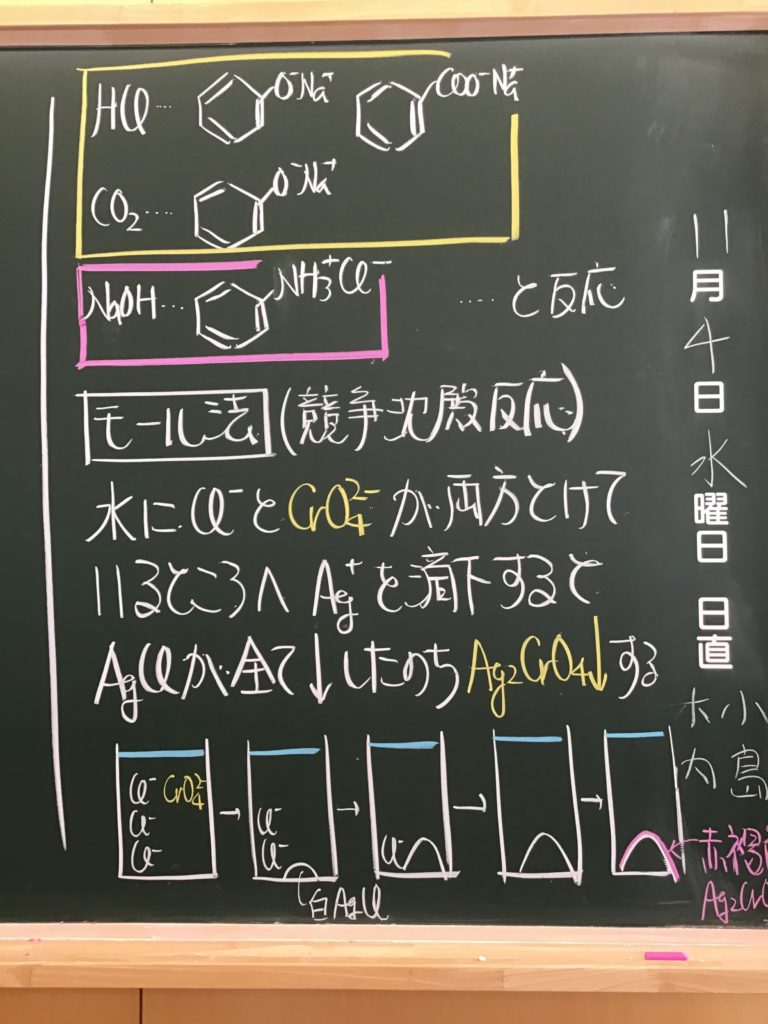 HCl… O⁻Na⁺ COO⁻Na⁺
CO₂…. O⁻Na⁺
NaOH… NH₃⁺Cl⁻ ….と反応
モール法 (競争沈殿反応)
水にCl⁻とCrO₄²⁻が両方とけて
いるところへ Ag⁺を滴下すると
AgClが全て↓したのちAg₂CrO₄↓する
Cl⁻ CrO₄²⁻
Cl⁻
Cl⁻
→
Cl⁻
Cl⁻
白AgCl
→
Cl⁻
→
→
←赤褐
Ag₂Cr
11月4日水曜日 日直
小島
大内